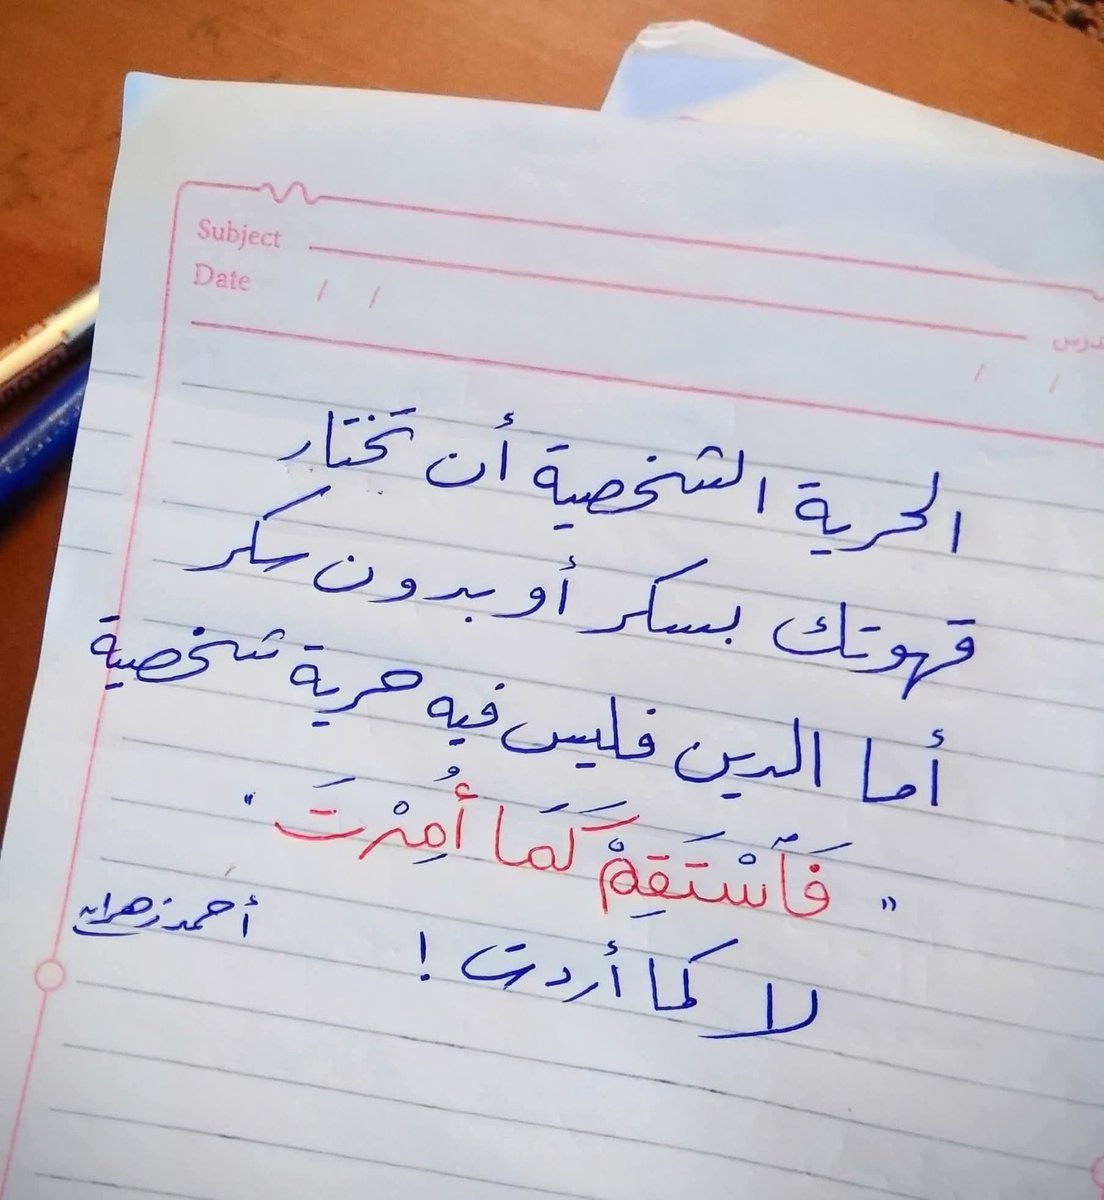 Subject
Date / /
الحرية الشخصية أن تختار
قهوتك بسكر أو بدون سكر
أما الدين فليس فيه حرية شخصية
" فَٱسْتَقِمْ كَمَا أُمِرْتَ "
لا كما أردت !
أحمد زهران